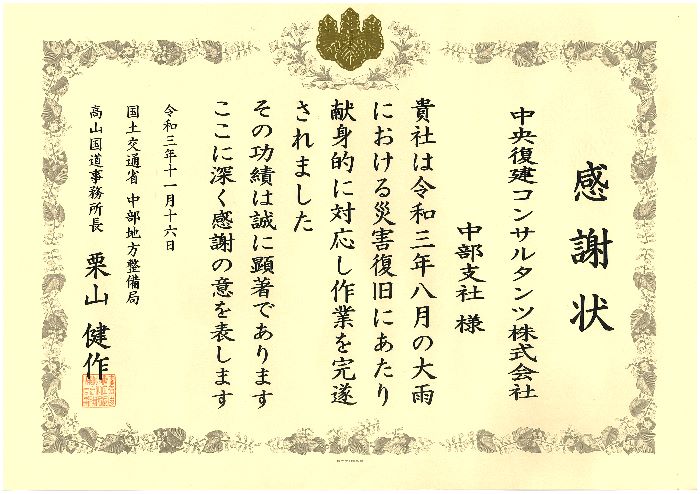 感謝状
中央復建コンサルタンツ株式会社
中部支社 様
貴社は令和三年八月の大雨
における災害復旧にあたり
献身的に対応し作業を完遂
されました
その功績は誠に顕著であります
ここに深く感謝の意を表します
令和三年十一月十六日
国土交通省 中部地方整備局
高山国道事務所長 栗山 健作